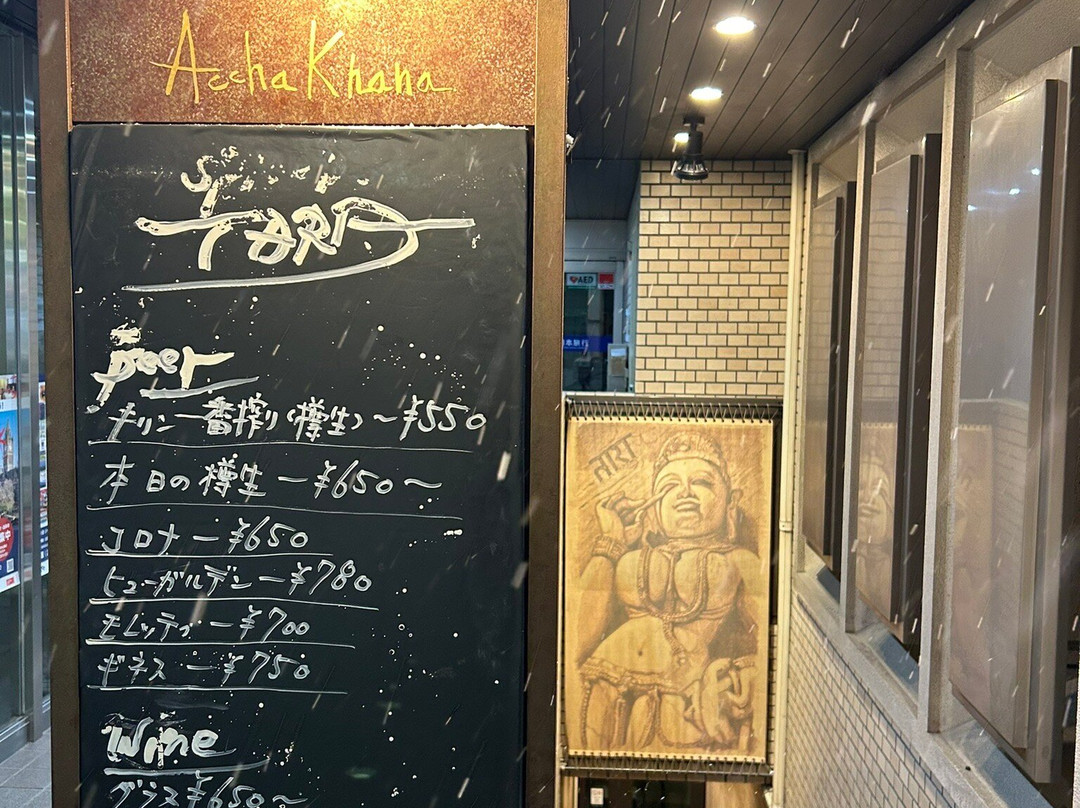 Accha Khana
TARA
Beer
キリン一番搾り(樽生)〜¥550
本日の樽生ー¥650〜
コロナー¥650
ヒューガルデンー¥780
モレッティー¥700
ギネスー¥750
Wine
グラス¥650〜
AED
तारा